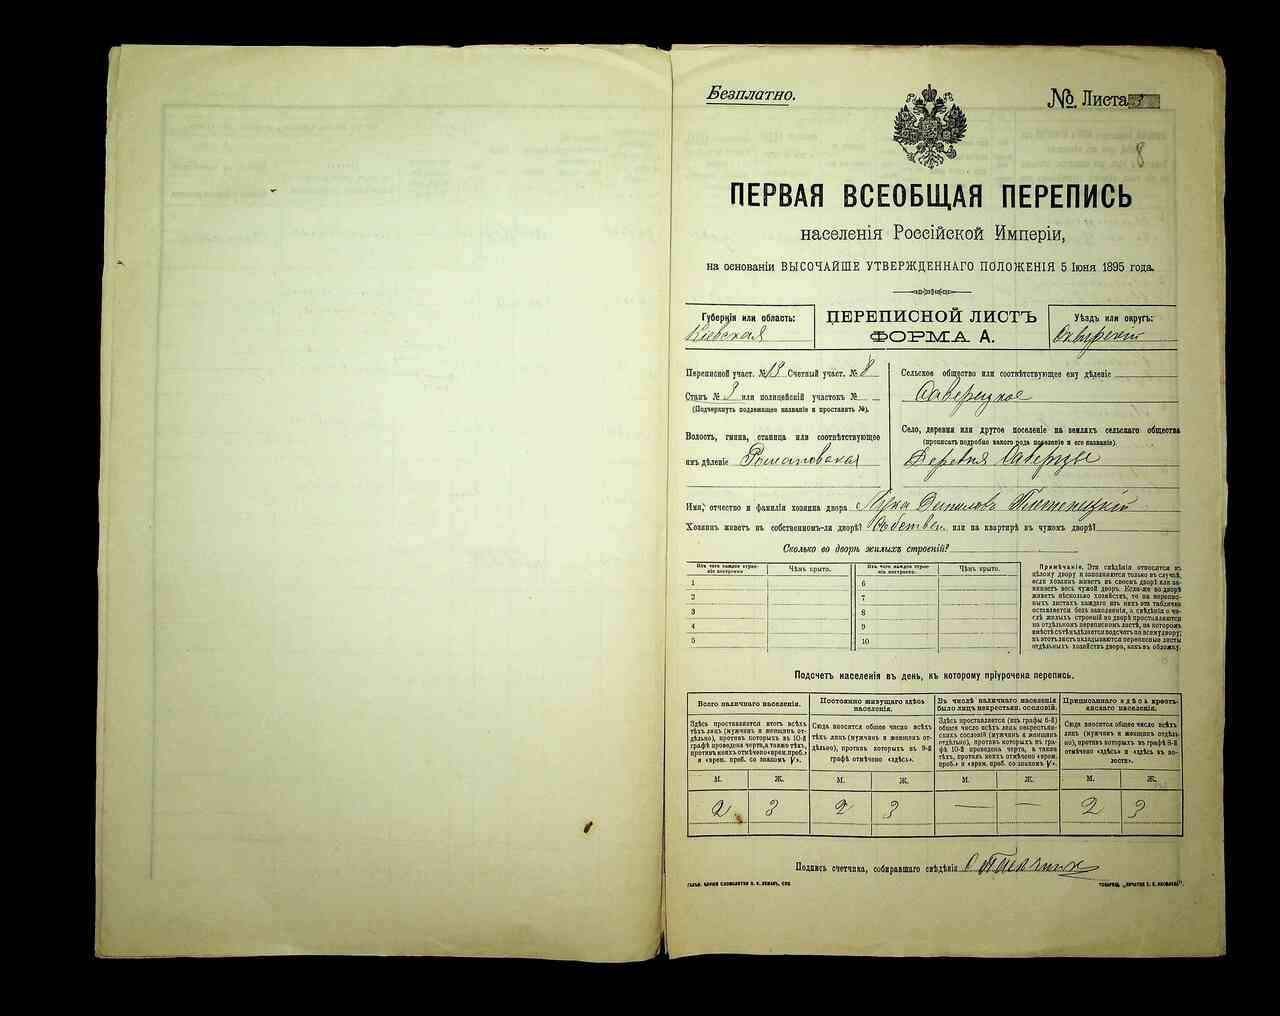 Безплатно.
№ Листа 3
8
ПЕРВАЯ ВСЕОБЩАЯ ПЕРЕПИСЬ
населенія Россійской Имперіи,
на основаніи ВЫСОЧАЙШЕ УТВЕРЖДЕННАГО ПОЛОЖЕНІЯ 5 Іюня 1895 года.
Губернія или область:
Кіевская
ПЕРЕПИСНОЙ ЛИСТЪ
ФОРМА А.
Уѣздъ или округъ:
Сквирскій
Переписной участ. № 13 Счетный участ. № 8
Станъ № 3 или полицейскій участокъ №
(Подчеркнуть подлежащее названіе и проставить №).
Волость, гмина, станица или соотвѣтствующее
имъ дѣленіе Романовская
Сельское общество или соотвѣтствующее ему дѣленіе
Саверецкое
Село, деревня или другое поселеніе на земляхъ сельскаго общества
(прописать подробно какого рода поселеніе и его названіе).
Деревня Саверцы
Имя, отчество и фамилія хозяина двора Лука
Хозяинъ живетъ въ собственномъ-ли дворѣ? Собствен. или на квартирѣ въ чужомъ дворѣ?
Сколько во дворѣ жилыхъ строеній?
Изъ чего каждое строе-
ніе построено.
Чѣмъ крыто.
Изъ чего каждое строе-
ніе построено.
Чѣмъ крыто.
1
2
3
4
5
6
7
8
9
10
Примѣчаніе. Эти свѣдѣнія относятся къ
цѣлому двору и заполняются только въ случаѣ,
если хозяинъ живетъ въ своемъ дворѣ или за-
нимаетъ весь чужой дворъ. Если-же во дворѣ
живетъ нѣсколько хозяйствъ, то на перепис-
ныхъ листахъ каждаго изъ нихъ эта табличка
оставляется безъ заполненія, а свѣдѣнія о чи-
слѣ жилыхъ строеній во дворѣ проставляются
на отдѣльномъ переписномъ листѣ, на которомъ
вмѣстѣ съ тѣмъ дѣлается подсчетъ по всему двору;
въ этотъ листъ вкладываются переписные листы
отдѣльныхъ хозяйствъ двора, какъ въ обложку.
Подсчетъ населенія въ день, къ которому пріурочена перепись.
Всего наличнаго населенія.
Здѣсь проставляется итогъ всѣхъ
тѣхъ лицъ (мужчинъ и женщинъ от-
дѣльно), противъ которыхъ въ 10-й
графѣ проведена черта, а также тѣхъ,
противъ коихъ отмѣчено «врем. преб.»
и «врем. преб. со знакомъ V».
Постоянно живущаго здѣсь
населенія.
Сюда вносится общее число всѣхъ
тѣхъ лицъ (мужчинъ и женщинъ от-
дѣльно), противъ которыхъ въ 9-й
графѣ отмѣчено «здѣсь».
Въ числѣ наличнаго населенія
было лицъ некрестьян. сословій.
Здѣсь проставляется (изъ графы 6-й)
общее число всѣхъ лицъ некрестьян-
скихъ сословій (мужчинъ и женщинъ
отдѣльно), противъ которыхъ въ гра-
фѣ 10-й проведена черта, а также
тѣхъ, противъ коихъ отмѣчено «врем.
преб.» и «врем. преб. со знакомъ V».
Приписаннаго здѣсь кресть-
янскаго населенія.
Сюда вносится общее число всѣхъ
лицъ (мужчинъ и женщинъ отдѣль-
но), противъ которыхъ въ графѣ 8-й
отмѣчено «здѣсь» и «здѣсь въ во-
лости».
М. Ж. М. Ж. М. Ж. М. Ж.
2 3 2 3 — — 2 3
Подпись счетчика, собиравшаго свѣдѣнія